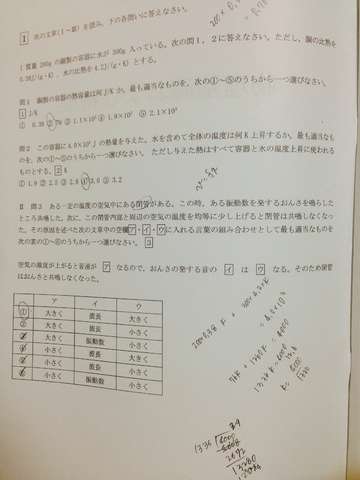 I 次の文章(I～Ⅲ)を読み、下の各問いに答えなさい。
I 質量 200g の銅製の容器に水が 300g 入っている。次の問1、2に答えなさい。ただし、銅の比熱を
0.38J/(g・K)、水の比熱を4.2J/(g・K)とする。
問1 銅製の容器の熱容量は何J/Kか。最も適当なものを、次の①～⑤のうちから一つ選びなさい。
1 J/K
① 0.38 ② 76 ③ 1.1×10² ④ 1.9×10² ⑤ 2.1×10³
問2 この容器に4.0×10³Jの熱量を与えた。水を含めて全体の温度は何K上昇するか。最も適当なもの
を、次の①～⑤のうちから一つ選びなさい。ただし与えた熱はすべて容器と水の温度上昇に使われる
ものとする。 2 K
① 1.9 ② 2.5 ③ 2.8 ④ 3.0 ⑤ 3.2
Ⅱ 問3 ある一定の温度の空気中にある閉管がある。この時、ある振動数を発するおんさを鳴らした
ところ共鳴した。次に、この閉管内部と周辺の空気の温度を均等に少し上げると閉管は共鳴しなくなっ
た。その原因を述べた次の文章中の空欄ア・イ・ウに入れる言葉の組み合わせとして最も適当なものを
次の表の①～⑥のうちから一つ選びなさい。 3
空気の温度が上がると音速が ア なるので、おんさの発する音の イ は ウ なる。そのため閉管
はおんさと共鳴しなくなった。
ア イ ウ
① 大きく 波長 大きく
② 大きく 波長 小さく
大きく 振動数 小さく
小さく 波長 大きく
小さく 波長 小さく
小さく 振動数 小さく